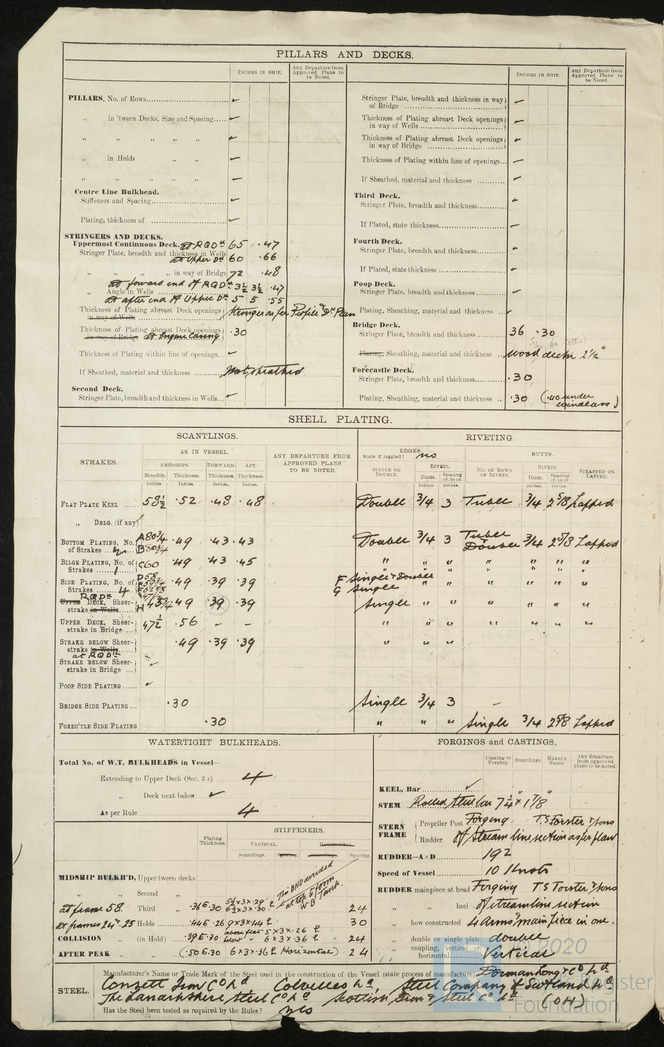 PILLARS AND DECKS.
INCHES IN SHIP. Any Departure from Approved Plans to be Noted.
PILLARS, No. of Rows
" in 'tween Decks, Size and Spacing
" " " "
" in Holds " "
" " " "
Centre Line Bulkhead.
Stiffeners and Spacing
Plating, thickness of
STRINGERS AND DECKS.
Uppermost Continuous Deck. at RQDk 65 .47
Stringer Plate, breadth and thickness in Wells
at Upper Dk 60 .66
" " " in way of Bridge 72 .48
at forward end of RQDk 3½ 3½ .47
" Angle in Wells
at after end of Upper Dk 5 5 .55
Thickness of Plating abreast Deck openings in way of Wells
Thickness of Plating abreast Deck openings in way of Bridge at Engine Casing .30
Thickness of Plating within line of openings
If Sheathed, material and thickness Not sheathed
Second Deck.
Stringer Plate, breadth and thickness in Wells
INCHES IN SHIP. Any Departure from Approved Plans to be Noted.
Stringer Plate, breadth and thickness in way of Bridge
Thickness of Plating abreast Deck openings in way of Wells
Thickness of Plating abreast Deck openings in way of Bridge
Thickness of Plating within line of openings
If Sheathed, material and thickness
Third Deck.
Stringer Plate, breadth and thickness
If Plated, state thickness
Fourth Deck.
Stringer Plate, breadth and thickness
If Plated, state thickness
Poop Deck.
Stringer Plate, breadth and thickness
Plating, Sheathing, material and thickness
Bridge Deck.
Stringer Plate, breadth and thickness 36 .30
Plating, Sheathing, material and thickness Wood deck 2½"
Forecastle Deck.
Stringer Plate, breadth and thickness .30
Plating, Sheathing, material and thickness .30 (wo under windlass)
SHELL PLATING.
SCANTLINGS.
RIVETING.
STRAKES.
AS IN VESSEL.
AMIDSHIPS. FORWARD. AFT.
Breadth. Thickness. Thickness. Thickness.
Inches. Inches. Inches. Inches.
ANY DEPARTURE FROM APPROVED PLANS TO BE NOTED.
EDGES.
State if joggled? no
SINGLE OR DOUBLE.
RIVETS.
Diam. Spacing cr. to cr.
BUTTS.
NO. OF ROWS OF RIVETS.
RIVETS.
Diam. Spacing cr. to cr.
STRAPPED OR LAPPED.
FLAT PLATE KEEL 58½ .52 .48 .48 Double 3/4 3 Treble 3/4 2 5/8 Lapped
" DBLG. (if any)
BOTTOM PLATING, No. of Strakes .49 .43 .43 Double 3/4 3 Treble Double 3/4 2 5/8 Lapped
BILGE PLATING, No. of Strakes 1 C60 .49 .43 .45 " " " " " " "
SIDE PLATING, No. of Strakes 4 .49 .39 .39 F Single & Double G Single " " " " " "
RQDk
UPPER DECK, Sheerstrake in Wells .49 .39 .39 Single " " " " " "
UPPER DECK, Sheerstrake in Bridge 47½ .56 - - " " " " " " "
STRAKE BELOW Sheerstrake in Wells at RQDk .49 .39 .39 " " "
STRAKE BELOW Sheerstrake in Bridge
POOP SIDE PLATING
BRIDGE SIDE PLATING .30 Single 3/4 3 -
FOREC'TLE SIDE PLATING .30 " " " Single 3/4 2 5/8 Lapped
WATERTIGHT BULKHEADS.
Total No. of W.T. BULKHEADS in Vessel—
Extending to Upper Deck (Sec. 3 c) 4
" Deck next below
As per Rule 4
Plating Thickness. STIFFENERS.
VERTICAL
Scantlings. Spacing
MIDSHIP BULKH'D, Upper tween decks
" " Second "
at frame 58. Third " .36&.30 24
at frames 24-25 Holds .44&.26 30
COLLISION " (in Hold) .39&.30 6 x 3 x 36 24
AFTER PEAK " (.50&.30 6 x 3 x 36 Horizontal) 24
The BHD recessed at top to form W B Tank.
FORGINGS AND CASTINGS.
Casting or Forging. Scantlings. Maker's Name. Any departure from approved plans to be noted.
KEEL, Bar
STEM Rolled steel bar 7¼" x 1 7/8"
STERN FRAME Propeller Post Forging T S Forster & sons
Rudder " of stream line section as per plan
RUDDER—A×D 192
Speed of Vessel 10 Knots
RUDDER mainpiece at head Forging T S Forster & sons
" " heel of streamline section
" how constructed 4 Arms & main piece in one.
" double or single double
" coupling, vertical or horizontal Vertical
STEEL.
Manufacturer's Name or Trade Mark of the Steel used in the construction of the Vessel (state process of manufacture) Dorman Long & Co Ld
Consett Iron Co Ld, Colvilles Ld, Steel Company of Scotland Ld
The Lanarkshire Steel Co Ld Scottish Iron & Steel Co Ld (OH)
Has the Steel been tested as required by the Rules? yes
2020
Foundation